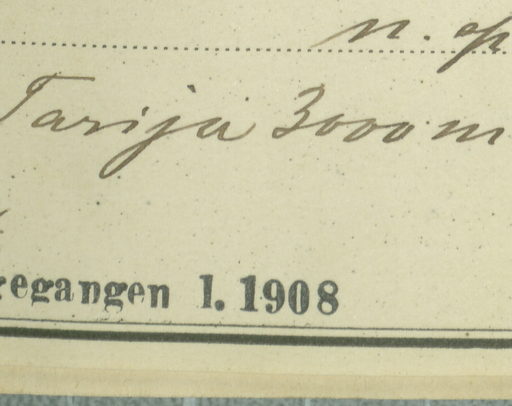 n. sp
Tarija 3000 m
gegangen 1. 1908